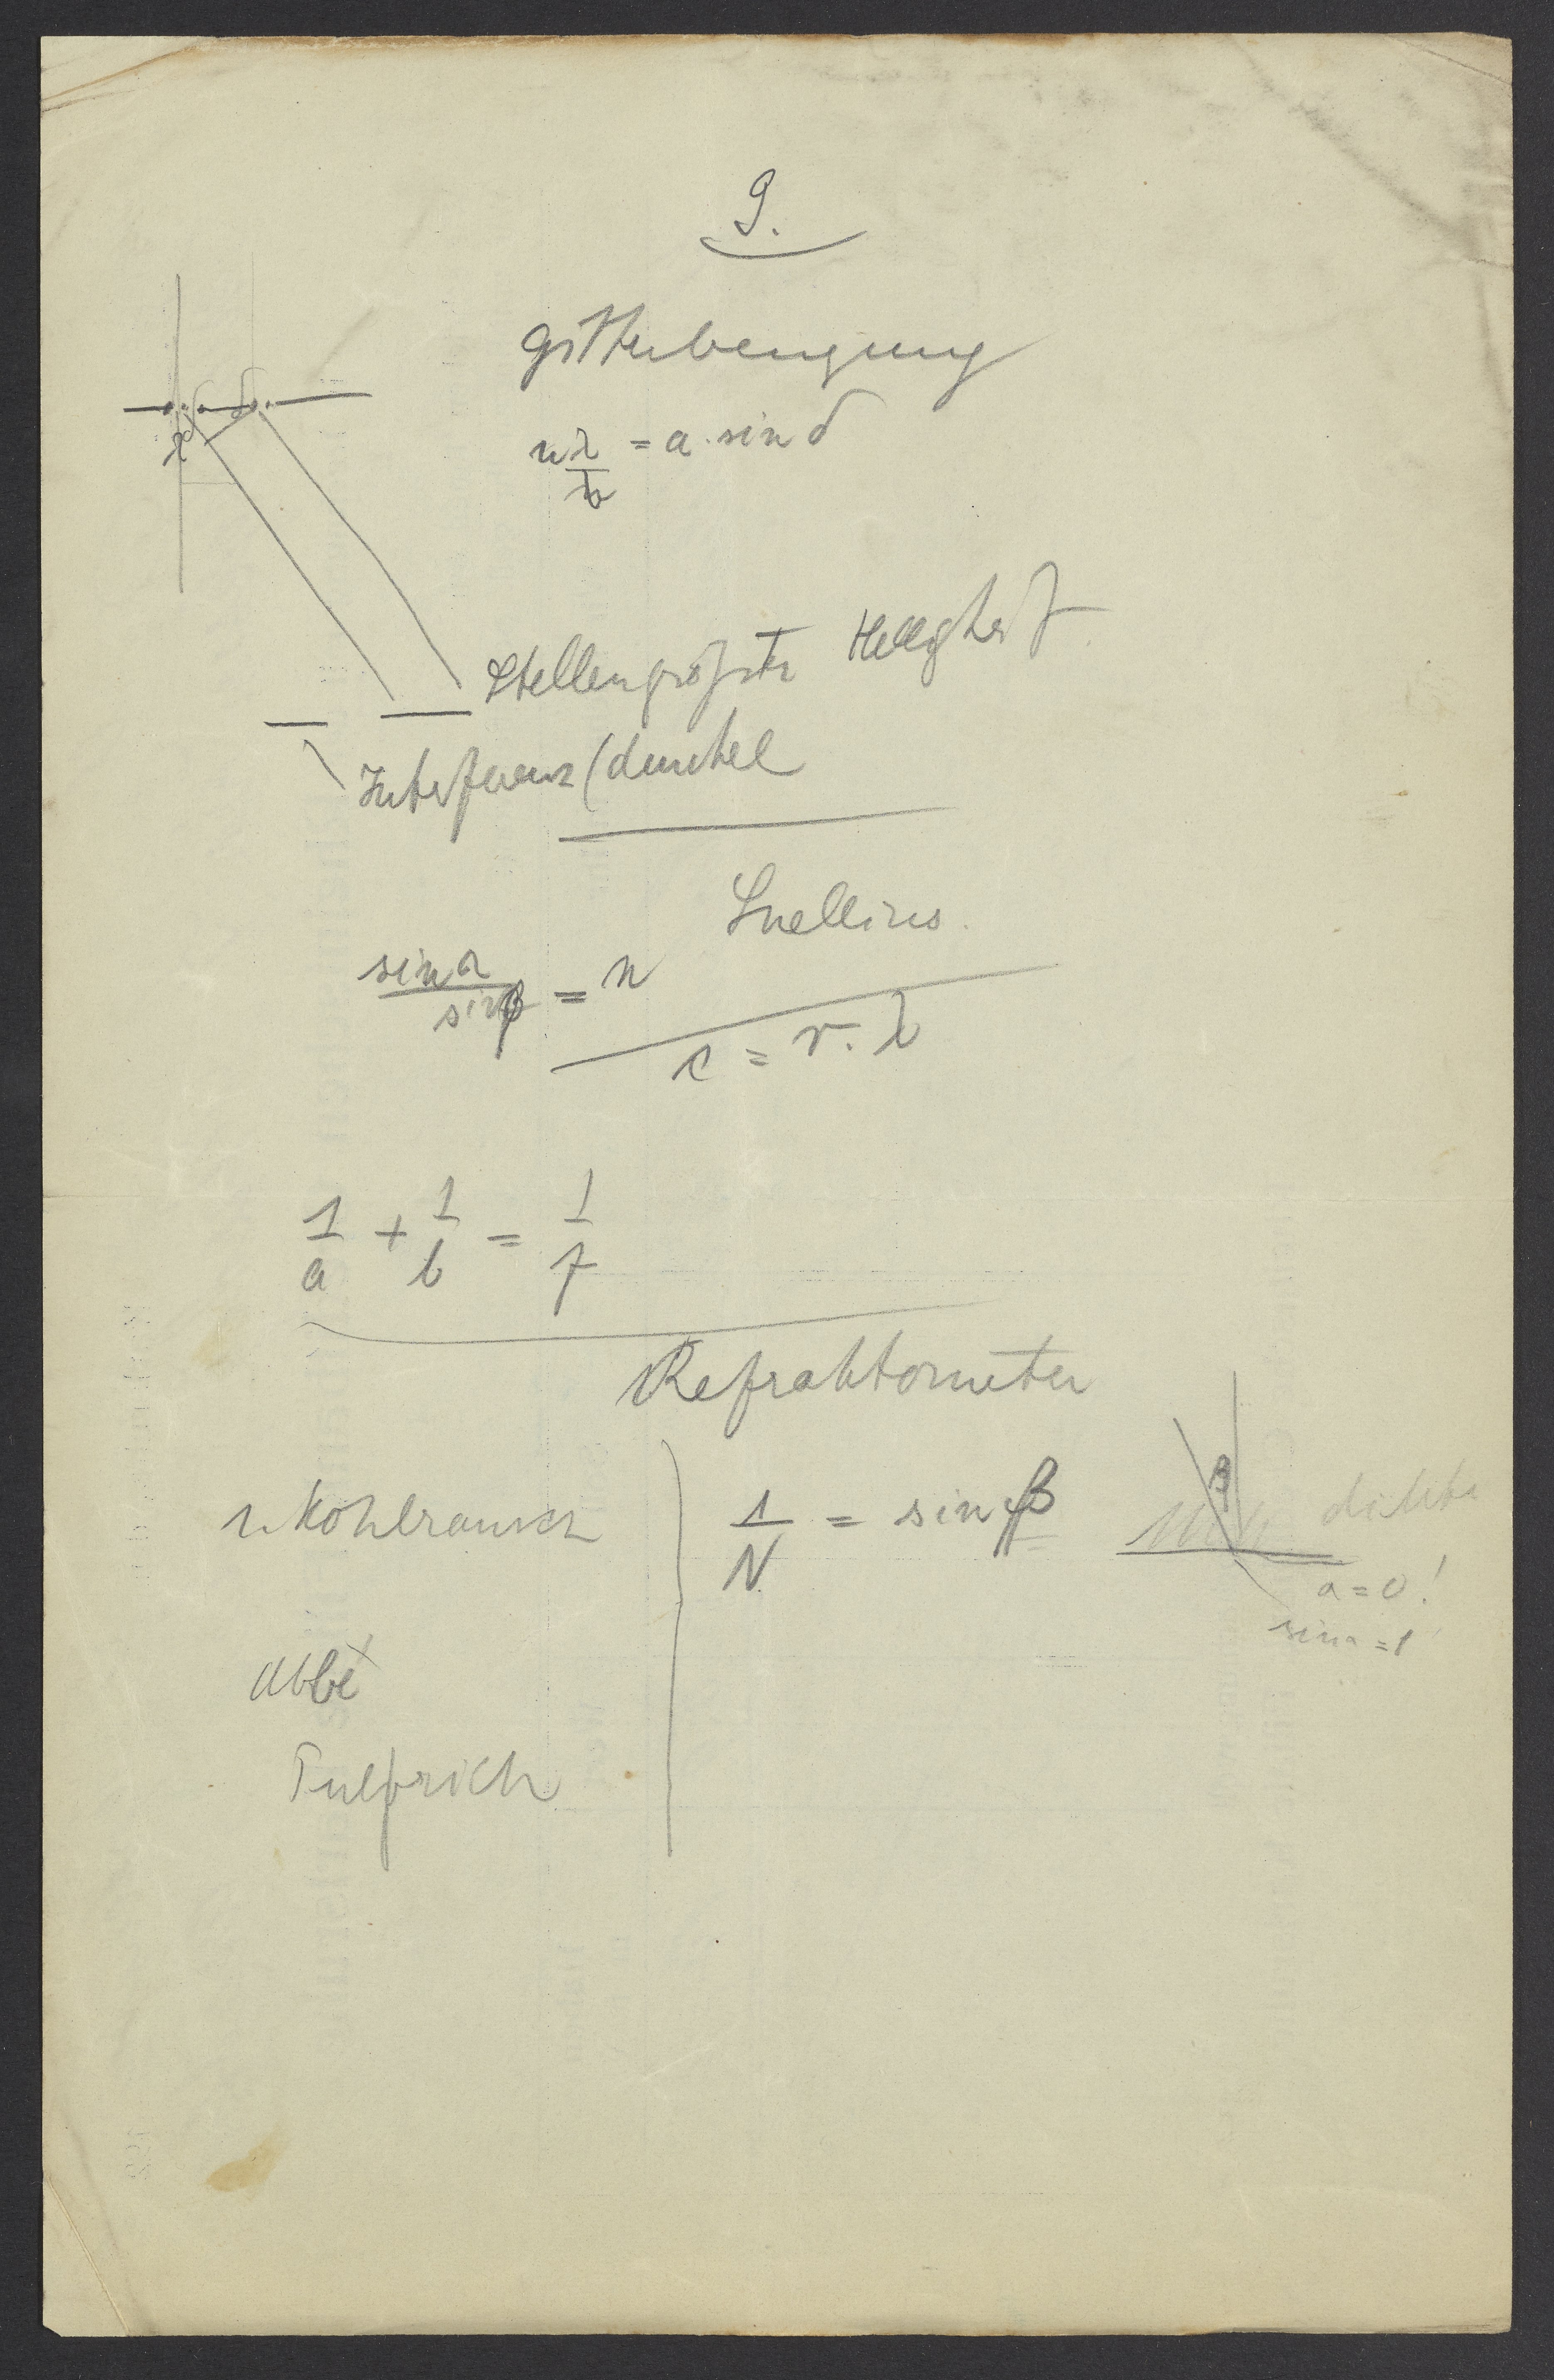 9.
Gitterbeugung
n λ/b = a · sin δ
δ δ
λ
Stellen größter Helligkeit
Interferenz (dunkel
Snellius.
sin α / sin β = n
c = ν · λ
1/a + 1/b = 1/f
Refraktometer
n. Kohlrausch
1/N = sin β
β
dichter
a = 0!
sin α = 1
Abbé
Pulfrich